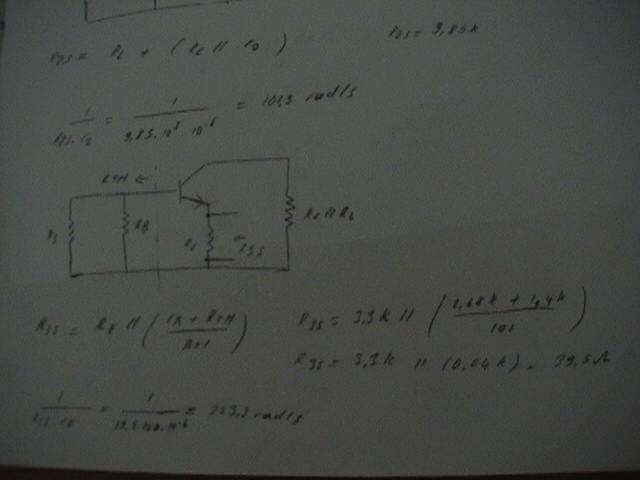 R2S = RL + (RC // ro)
R2S = 9,85k
1/R2S.C2 = 1/9,85.10³.10⁻⁶ = 101,5 rad/s
RTH ←
RB
RC // RL
← R3S
R3S = RE // (rπ + RTH / β+1)
R3S = 3,3k // (2,68k + 1,4k / 101)
R3S = 3,3k // (0,04k) = 39,5 Ω
= 1/39,5.100.10⁻⁶ = 253,2 rad/s